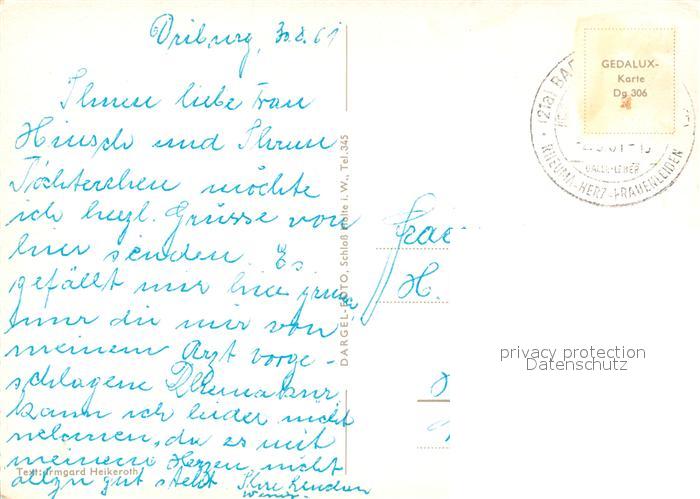 Driburg, 30.8.61
Ihnen liebe Frau
Hinsch und Ihren
Töchterchen möchte
ich herzl. Grüsse von
hier senden. Es
gefällt mir hier prima,
nur die mir von
meinem Arzt vorge-
schlagene
kann ich leider nicht
nehmen, da es mit
meinem Herzen nicht
allzu gut steht. Ihre
Text: Irmgard Heikeroth
DARGEL-FOTO, Schloß Holte i. W., Tel. 345
GEDALUX-
Karte
Dg 306
(21a) BAD
RHEUMA-HERZ-FRAUENLEIDEN
Frau
H.
privacy protection
Datenschutz